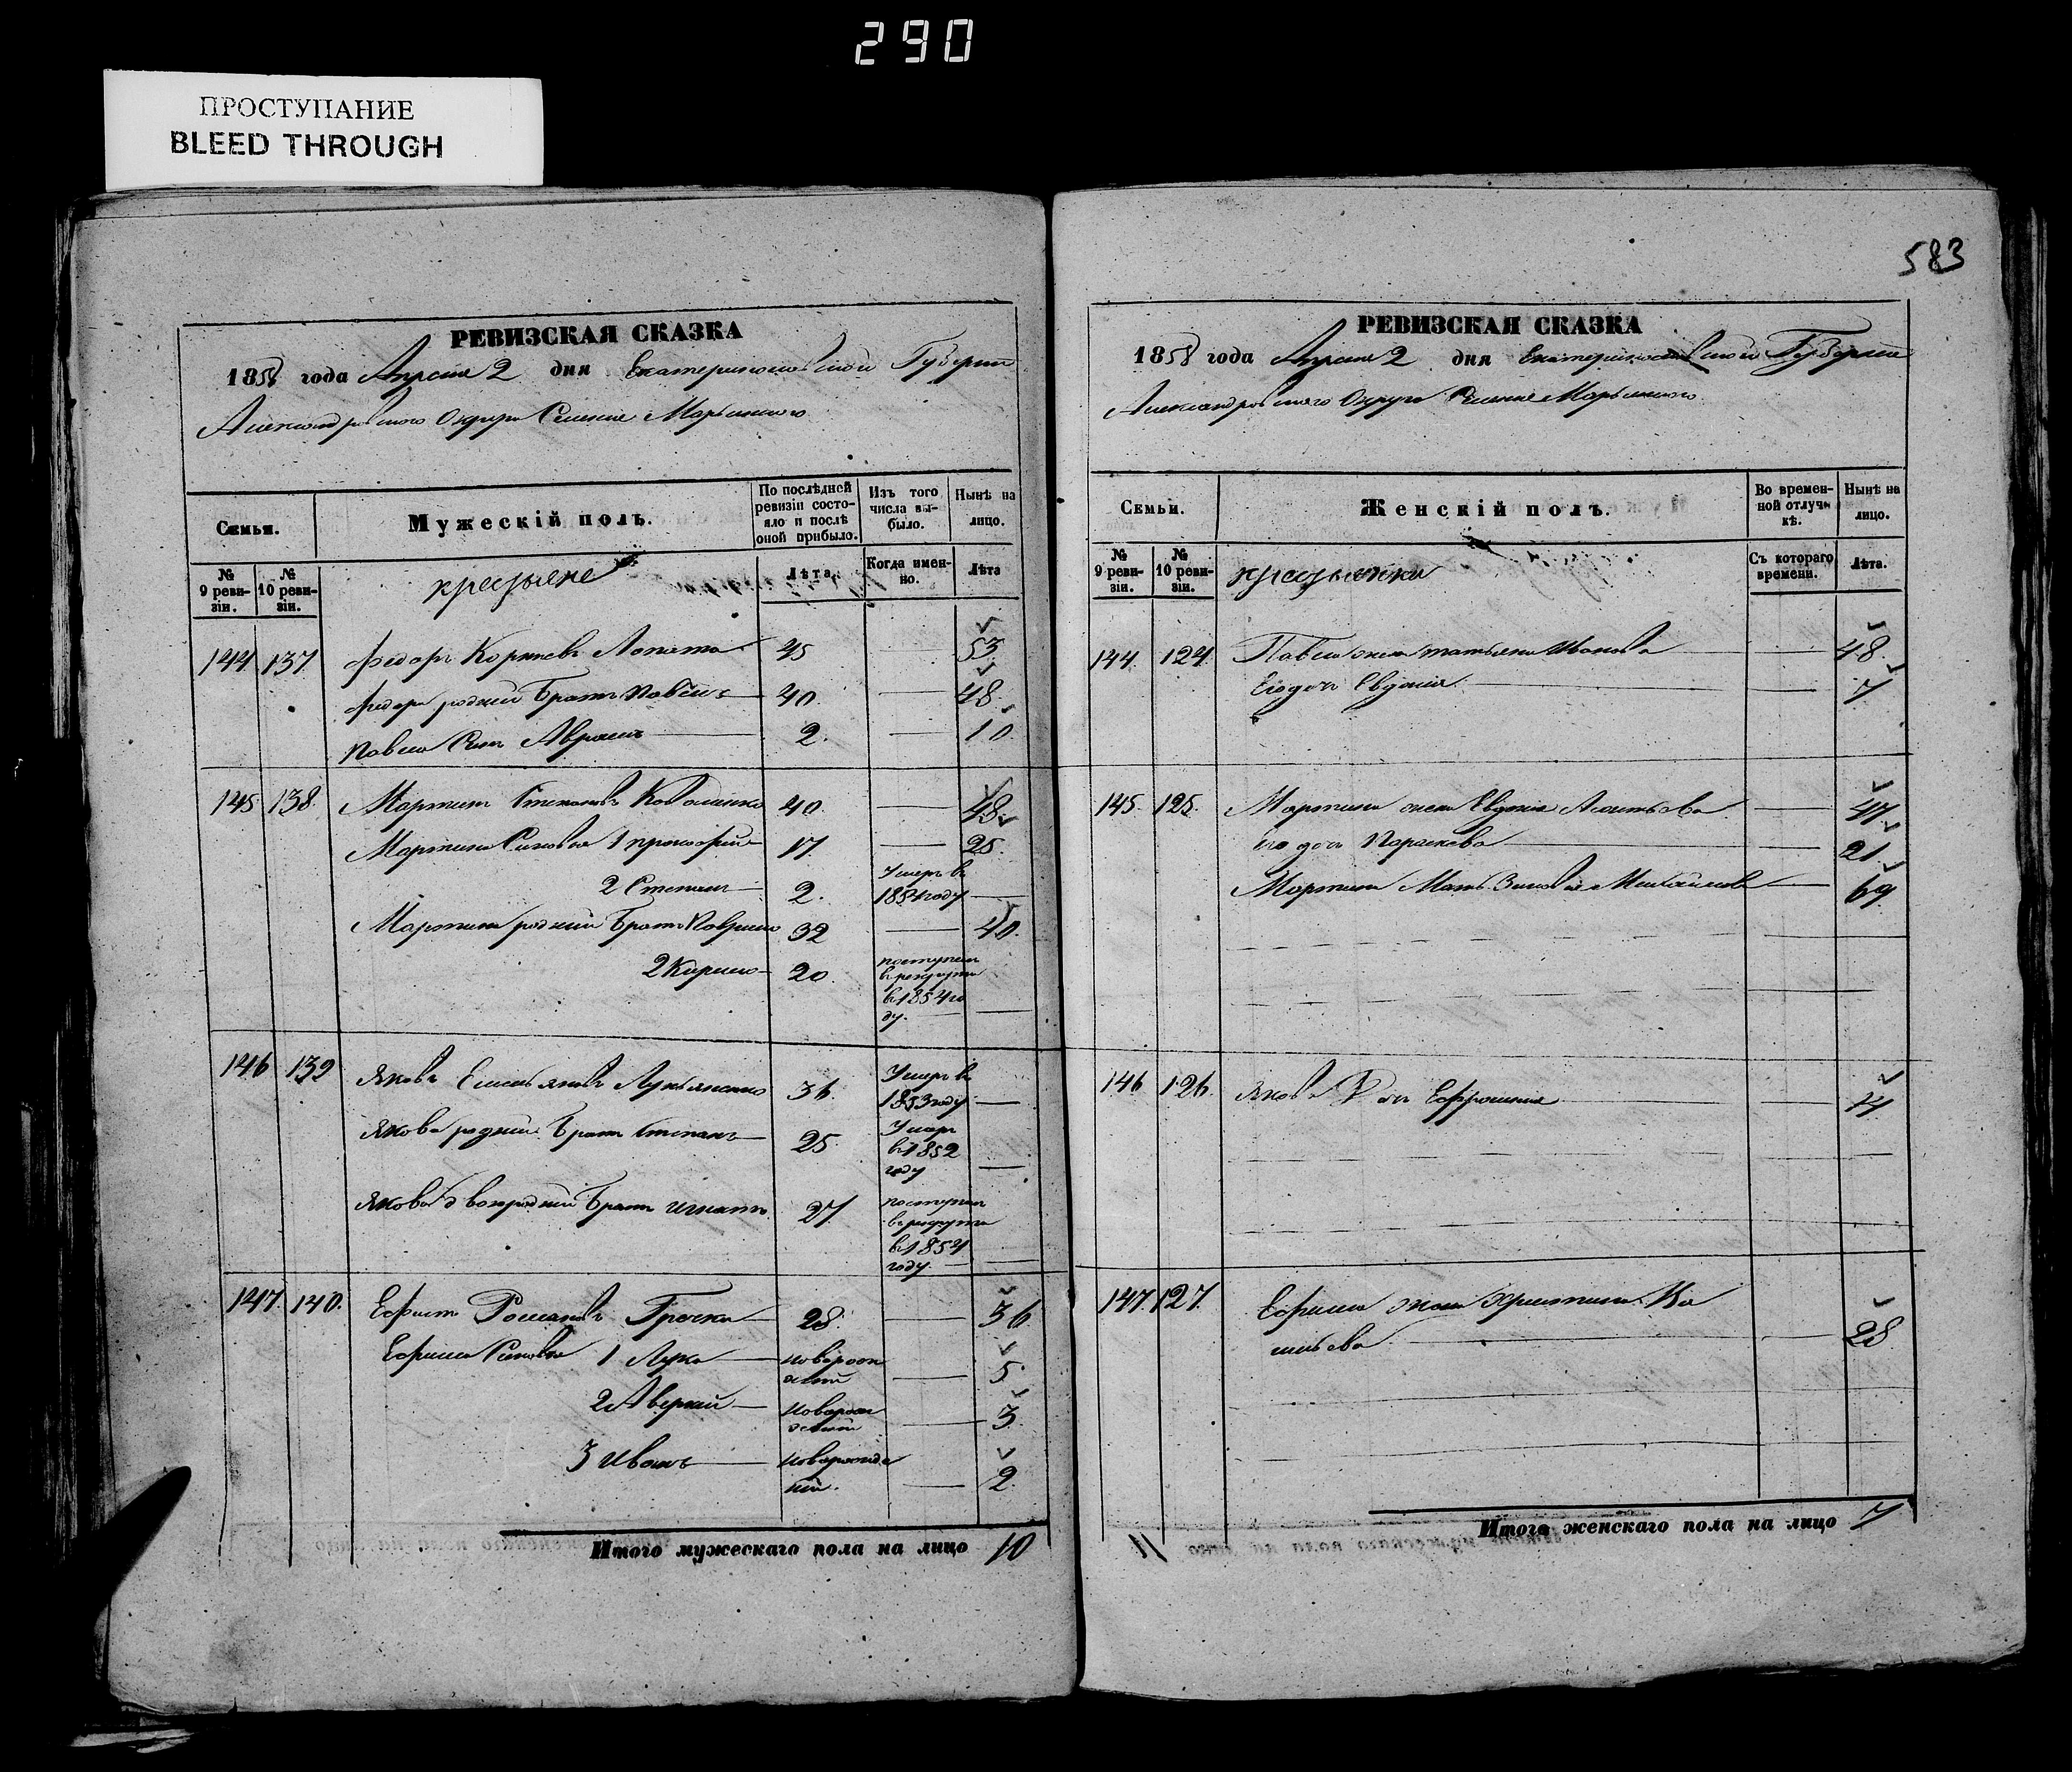 290
ПРОСТУПАНИЕ
BLEED THROUGH
РЕВИЗСКАЯ СКАЗКА
1858 года Апреля 2 дня Екатеринославской Губернии
Александровского Округа Селение Марьинского
Семьи.
Мужескій полъ.
По послѣдней ревизіи состояло и послѣ оной прибыло.
Изъ того числа выбыло.
Нынѣ на лицо.
№ 9 ревизіи.
№ 10 ревизіи.
крестьяне
Лѣта.
Когда именно.
Лѣта
144 137 Федоръ Корнеевъ Лопата 45 — 53
Федора родний Братъ Павелъ — 40 — 48
Павла Синъ Аврамъ — 2. — 10
145 138. Мартинъ Степановъ Коваленко 40. — 48.
Мартина Синовья 1 прокофий — 17. — 25.
2 Степанъ — 2. Умеръ в 1854 году —
Мартина родний Братъ Гаврило 32 — 40.
2 Кирило — 20. поступил в рекруты в 1854 году. —
146 139 Яковъ Емельяновъ Лукьяненко 36. Умеръ в 1853 году —
Якова родний Братъ Степанъ — 25 Умеръ в 1852 году —
Якова двоюродний Братъ Игнатъ 27. поступил в рекруты в 1854 году. —
147. 140. Ефимъ Романовъ Грочка — 28. — 36
Ефима Синовья 1 Лука — новорожденний — 5.
2 Аверкий — новорожденний — 3.
3 Иванъ — новорожденний. — 2.
Итого мужескаго пола на лицо 10
583
РЕВИЗСКАЯ СКАЗКА
1858 года Апреля 2 дня Екатеринославской Губернии
Александровского Округа Селение Марьинского
Семьи.
Женскій полъ.
Во временной отлучкѣ.
Нынѣ на лицо.
№ 9 ревизіи.
№ 10 ревизіи.
крестьянки
Съ котораго времени.
Лѣта.
144. 124. Павла жена татьяна Иванова — 48
Его дочь Евдокия — 7
145. 125. Мартина жена Евдокия — 47.
Его дочь Параскева — 21.
Мартина Мать Зиновия Михайлова — 69.
146 126. Якова Дочь Ефросиния — 14
147. 127. Ефима жена Христина
— 28.
Итого женскаго пола на лицо 7